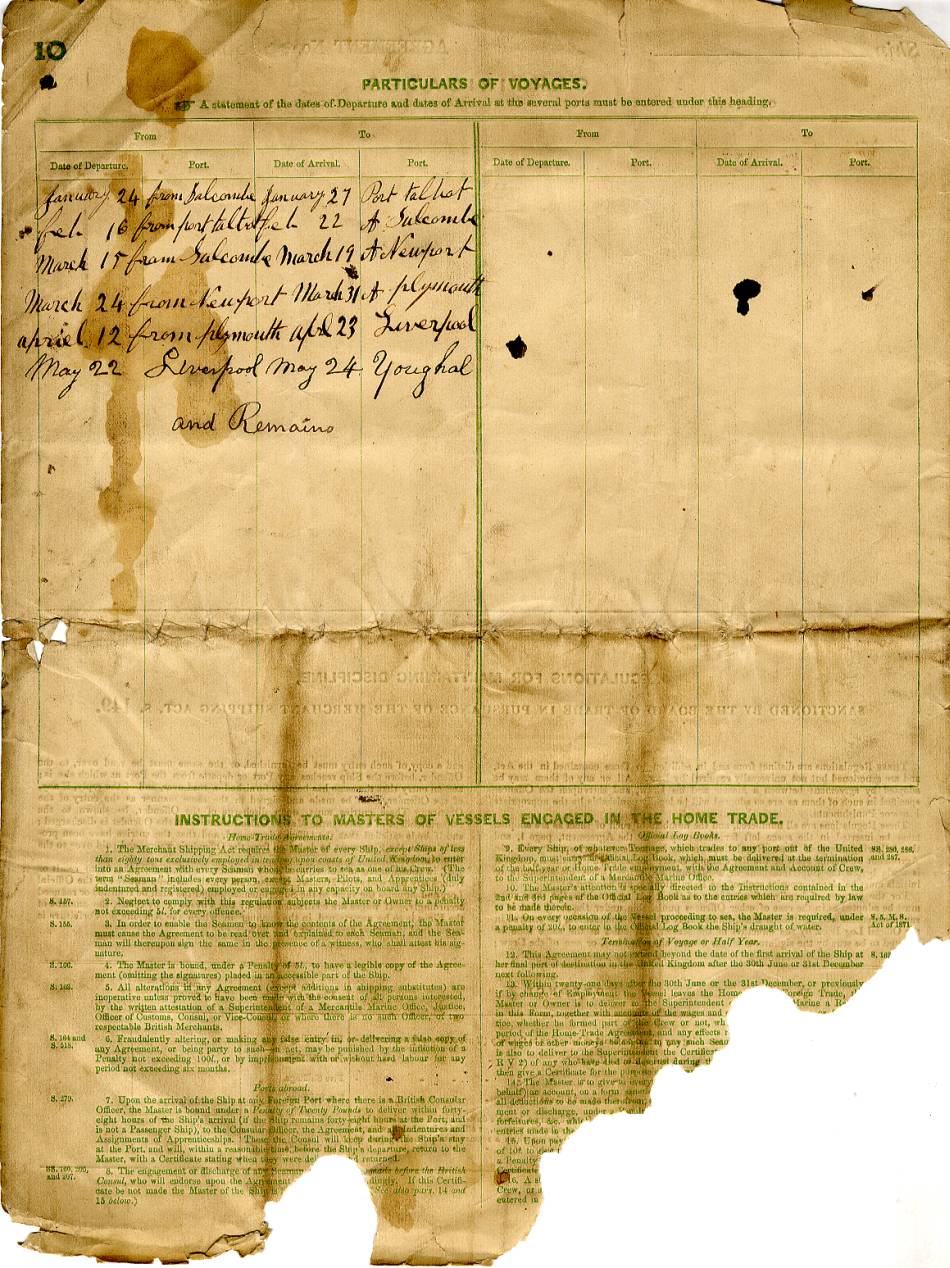 10
PARTICULARS OF VOYAGES.
A statement of the dates of Departure and dates of Arrival at the several ports must be entered under this heading.
From To From To
Date of Departure. Port. Date of Arrival. Port. Date of Departure. Port. Date of Arrival. Port.
January 24 from Salcombe January 27 Port talbot
feb 16 from port talbot feb 22 At Salcombe
March 15 from Salcombe March 19 At Newport
March 24 from Newport March 31 At plymouth
apriel 12 from plymouth apl 23 Liverpool
May 22 Liverpool May 24 Youghal
and Remains
INSTRUCTIONS TO MASTERS OF VESSELS ENGAGED IN THE HOME TRADE.
Home-Trade Agreements.
1. The Merchant Shipping Act requires the Master of every Ship, except Ships of less
than eighty tons exclusively employed in trading upon coasts of United Kingdom, to enter
into an Agreement with every Seaman whom he carries to sea as one of his Crew. (The
term "Seaman" includes every person, except Masters, Pilots, and Apprentices (duly
indentured and registered) employed or engaged in any capacity on board any Ship.)
S. 157. 2. Neglect to comply with this regulation subjects the Master or Owner to a penalty
not exceeding 5l. for every offence.
S. 155. 3. In order to enable the Seamen to know the contents of the Agreement, the Master
must cause the Agreement to be read over and explained to each Seaman, and the Sea-
man will thereupon sign the same in the presence of a witness, who shall attest his sig-
nature.
S. 166. 4. The Master is bound, under a Penalty of 5l., to have a legible copy of the Agree-
ment (omitting the signatures) placed in an accessible part of the Ship.
S. 163. 5. All alterations in any Agreement (except additions in shipping substitutes) are
inoperative unless proved to have been made with the consent of all persons interested,
by the written attestation of a Superintendent of a Mercantile Marine Office, Justice,
Officer of Customs, Consul, or Vice-Consul, or where there is no such Officer, of two
respectable British Merchants.
S. 164 and S. 518. 6. Fraudulently altering, or making any false entry in, or delivering a false copy of
any Agreement, or being party to such an act, may be punished by the infliction of a
Penalty not exceeding 100l., or by imprisonment with or without hard labour for any
period not exceeding six months.
Ports abroad.
S. 279. 7. Upon the arrival of the Ship at any Foreign Port where there is a British Consular
Officer, the Master is bound under a Penalty of Twenty Pounds to deliver within forty-
eight hours of the Ship's arrival (if the Ship remains forty-eight hours at the Port, and
is not a Passenger Ship), to the Consular Officer, the Agreement, and all Indentures and
Assignments of Apprenticeships. These the Consul will keep during the Ship's stay
at the Port, and will, within a reasonable time before the Ship's departure, return to the
Master, with a Certificate stating when they were delivered and returned.
SS. 160, 205, and 207. 8. The engagement or discharge of any Seaman made before the British
Consul, who will endorse upon the Agreement accordingly. If this Certifi-
cate be not made the Master of the Ship See also pars. 14 and
15 below.)
Official Log Books.
9. Every Ship, of whatever Tonnage, which trades to any port out of the United SS. 280, 286, and 287.
Kingdom, must carry an Official Log Book, which must be delivered at the termination
of the half year or Home Trade employment, with the Agreement and Account of Crew,
to the Superintendent of a Mercantile Marine Office.
10. The Master's attention is specially directed to the Instructions contained in the
2nd and 3rd pages of the Official Log Book as to the entries which are required by law
to be made therein.
11. On every occasion of the Vessel proceeding to sea, the Master is required, under S. 5, M. S. Act of 1871
a penalty of 20l., to enter in the Official Log Book the Ship's draught of water.
Termination of Voyage or Half Year.
12. This Agreement may not extend beyond the date of the first arrival of the Ship at
her final port of destination in the United Kingdom after the 30th June or 31st December
next following.
13. Within twenty-one days after the 30th June or 31st December, or previously
if by change of Employment the Vessel leaves the Home Foreign Trade,
Master or Owner is to deliver to the Superintendent of Marine
in this Form, together with accounts of the wages and
tice, whether he formed part of the Crew or not, wh
period of the Home-Trade Agreement, and any effects
of wages or other moneys
is also to deliver to the Superintendent the Certific
R V 2) of any who have died or deserted during th
then give a Certificate for the purpose
14. The Master is to give to every
behalf) an account, on a form
all deductions to be made therefrom,
ment or discharge, under
forfeitures, &c. whic
entries made in the
15. Upon pay
of 10l. to
a Penalty
Certificate
16. A s
Crew, or
entered in